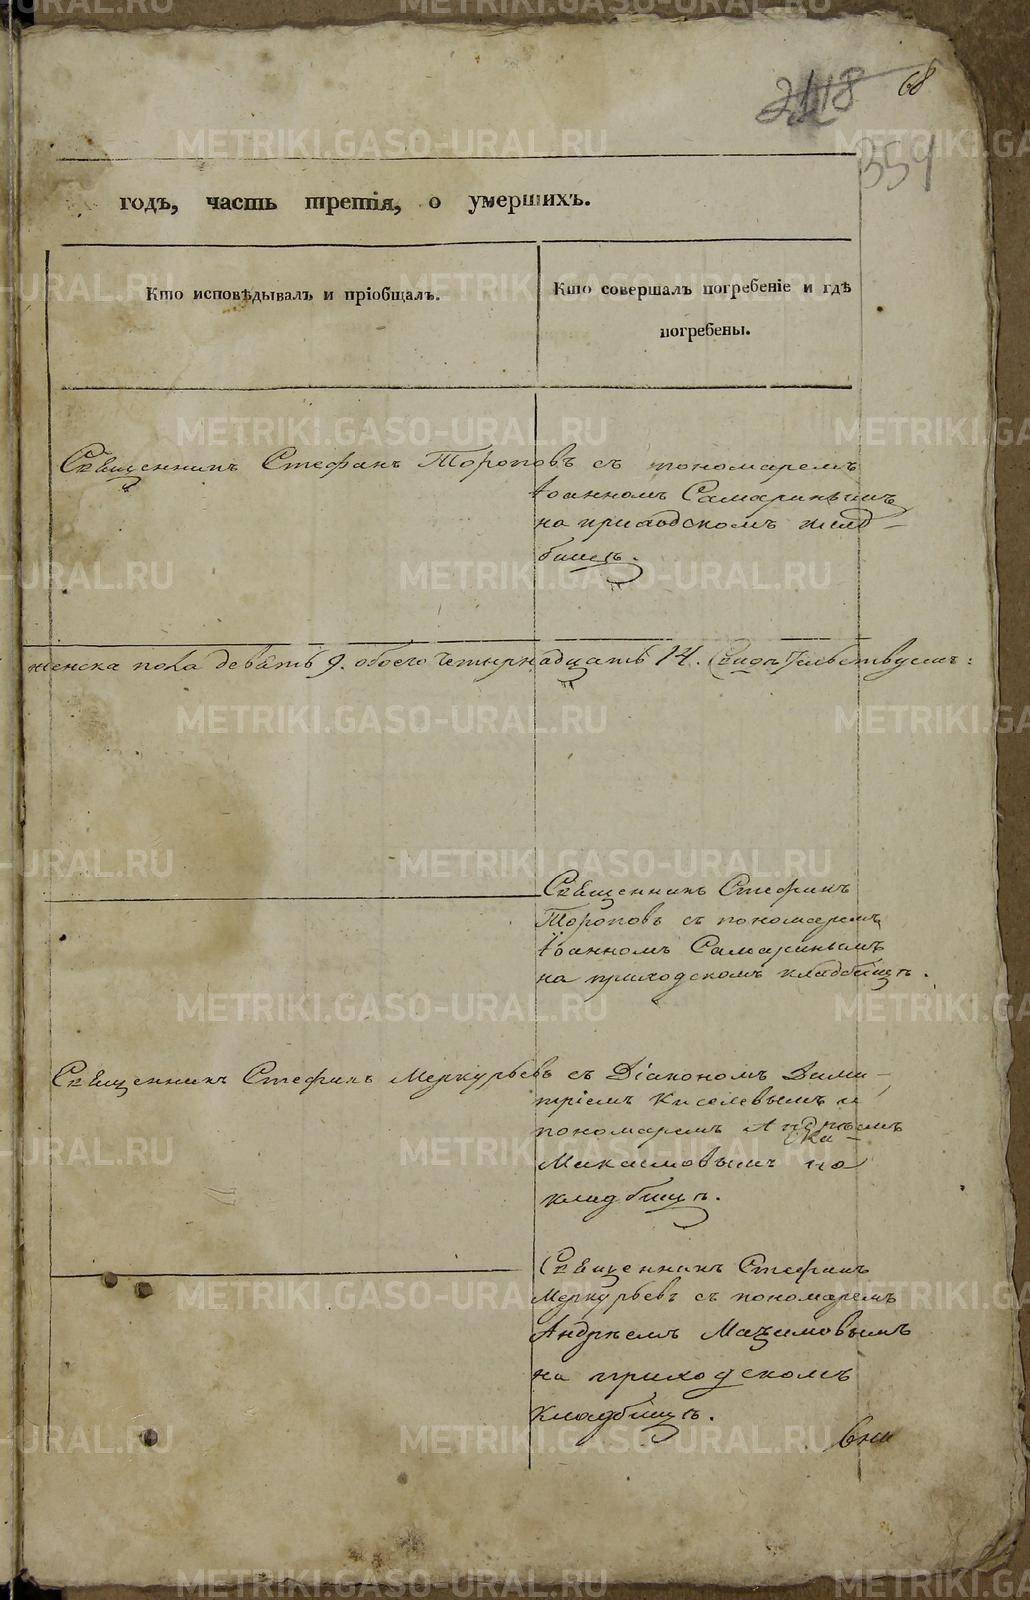 68
2118
359
годъ, часть третія, о умершихъ.
Кто исповѣдывалъ и пріобщалъ.
Кто совершалъ погребеніе и гдѣ
погребены.
Священникъ Стефанъ Тороповъ съ пономаремъ
Іоанномъ Самаринымъ
на приходскомъ клад-
бищѣ.
женска пола девять 9. обоего четырнадцать 14.
Священникъ Стефанъ
Тороповъ съ пономаремъ
Іоанномъ Самаринымъ
на приходскомъ кладбищѣ.
Священникъ Стефанъ Меркурьевъ съ Діакономъ Дими-
тріемъ Киселевымъ и
пономаремъ Андреемъ
Максимовымъ на
кладбищѣ.
Священникъ Стефанъ
Меркурьевъ съ пономаремъ
Андреемъ Максимовымъ
на приходскомъ
кладбищѣ.
METRIKI.GASO-URAL.RU